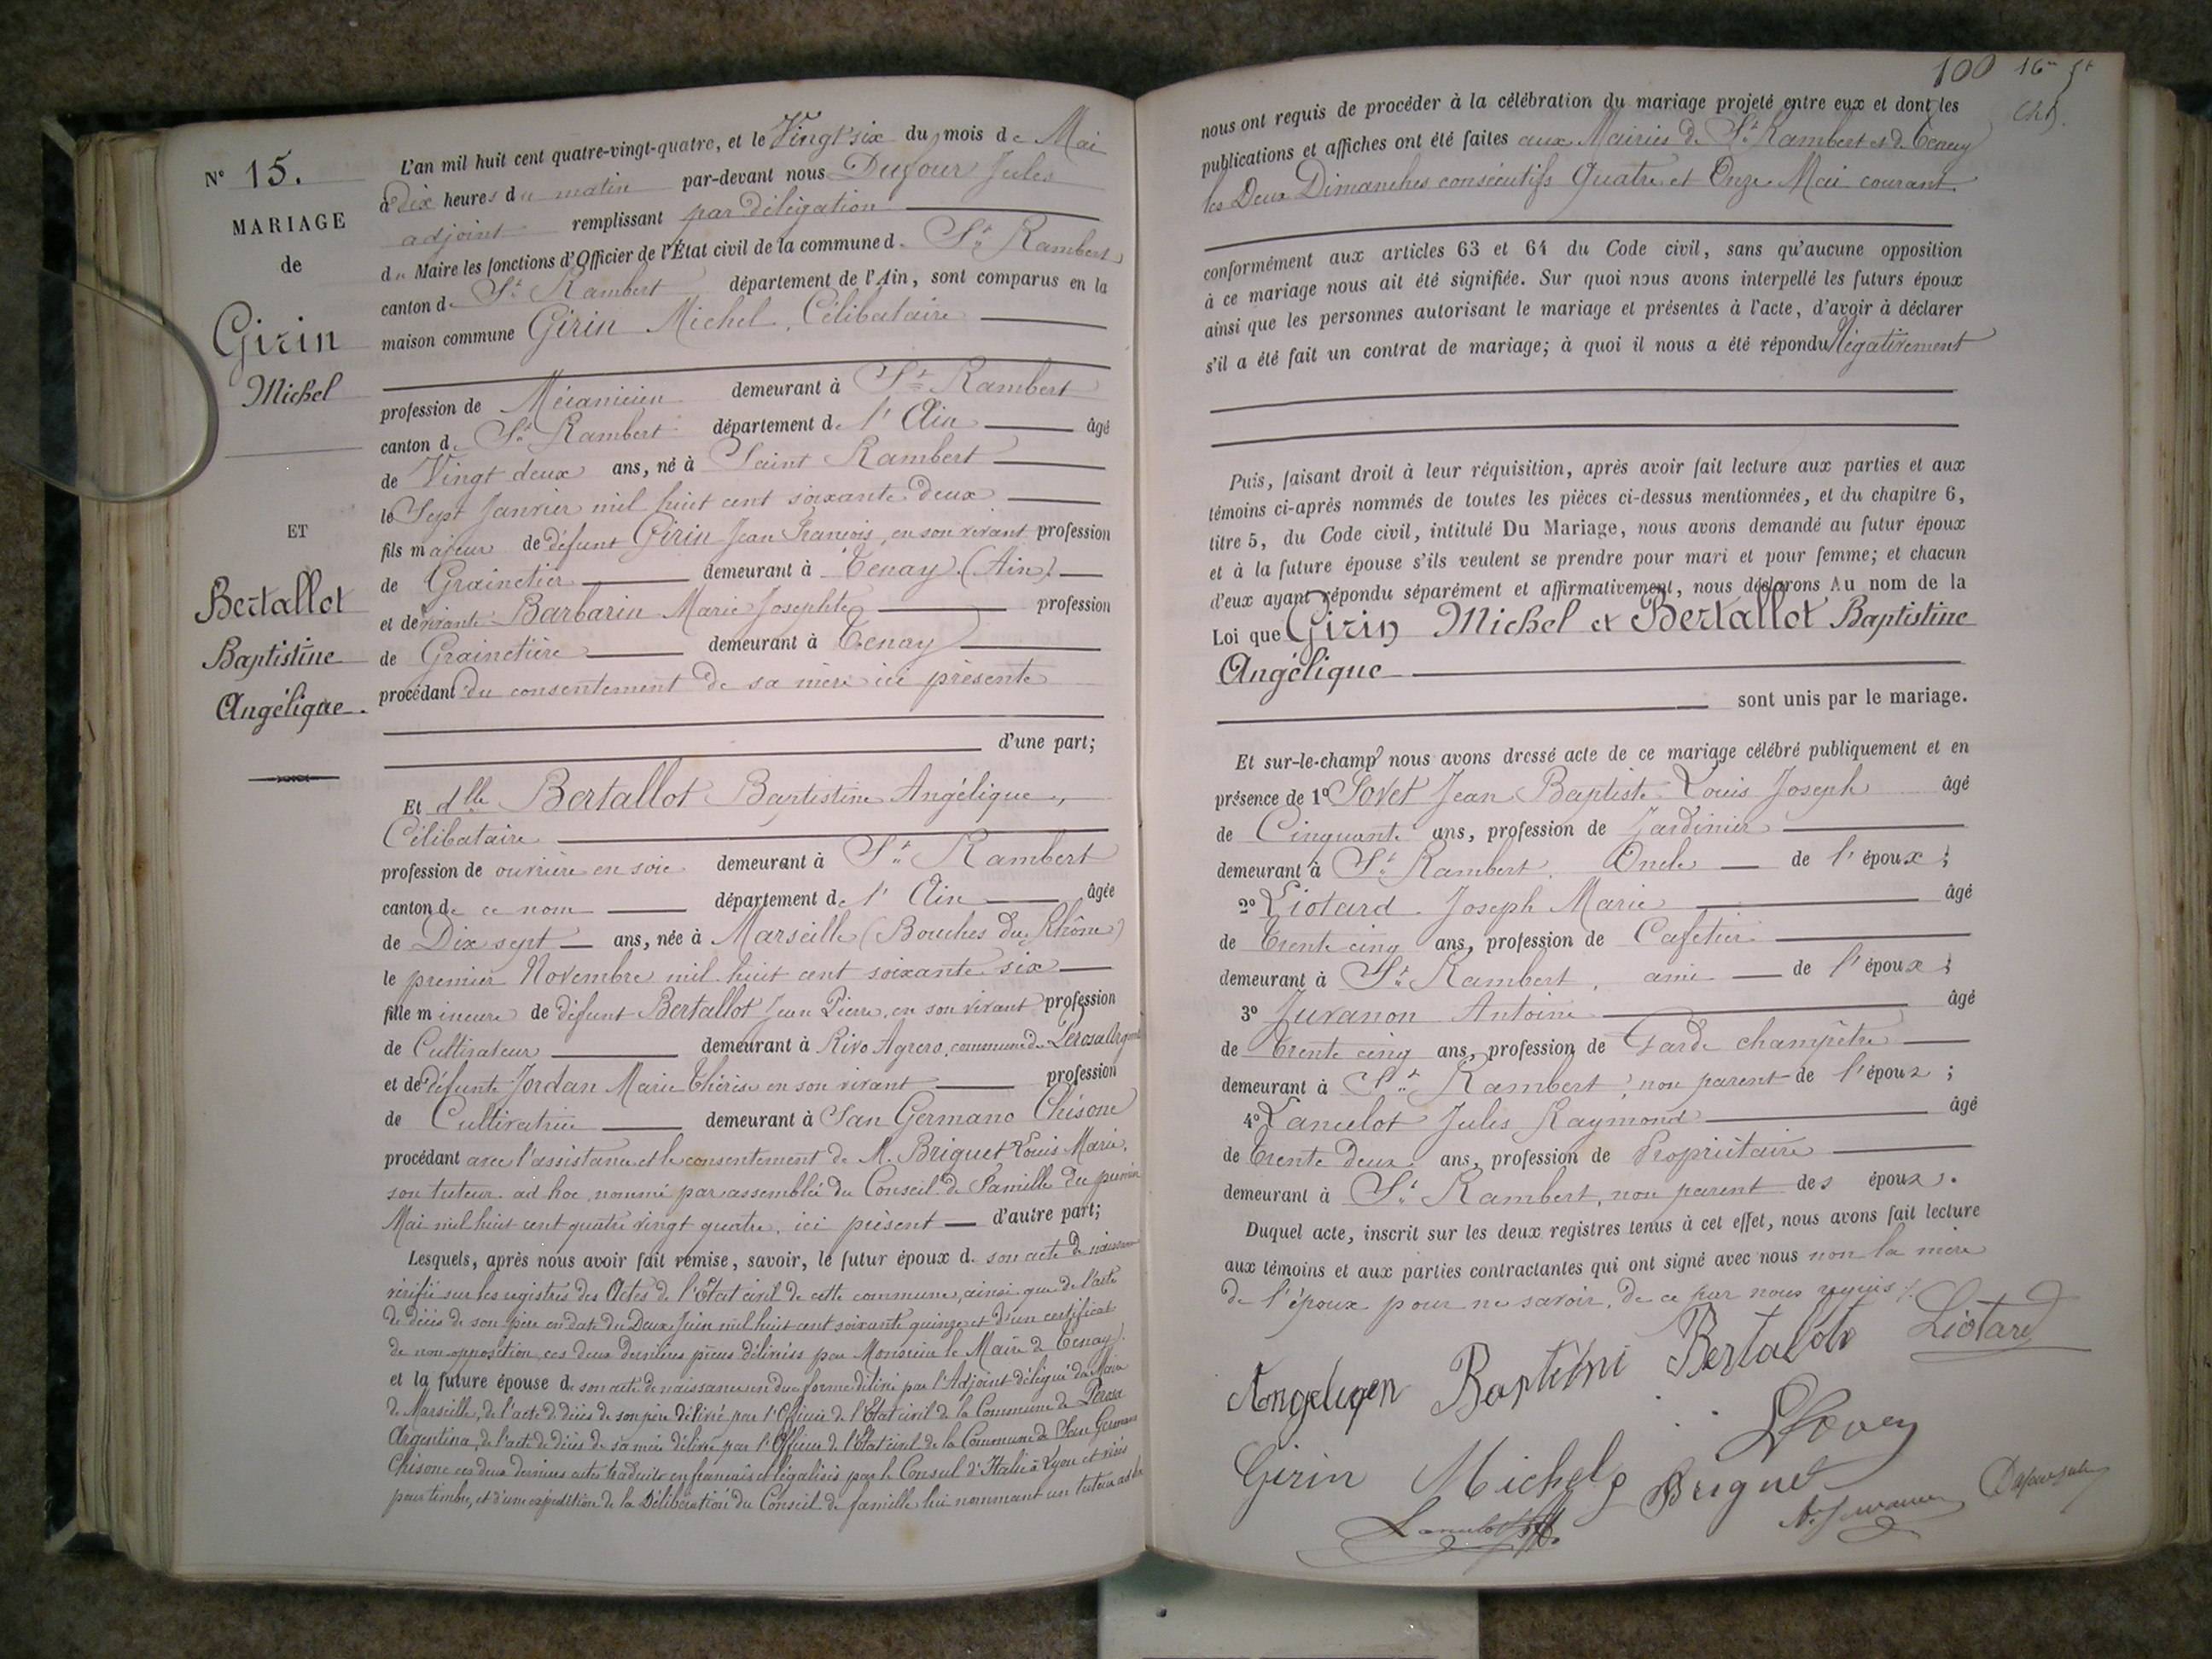 N° 15.
MARIAGE
de
Girin
Michel
ET
Bertallot
Baptistine
Angélique.
L'an mil huit cent quatre-vingt-quatre, et le Vingt six du mois de Mai
à dix heures du matin par-devant nous Dufour Jules
adjoint remplissant par délégation
du Maire les fonctions d'Officier de l'État civil de la commune de St Rambert
canton de St Rambert département de l'Ain, sont comparus en la
maison commune Girin Michel, Célibataire
profession de Mécanicien demeurant à St Rambert
canton de St Rambert département de l'Ain âgé
de Vingt deux ans, né à Saint Rambert
le Sept Janvier mil huit cent soixante deux
fils majeur de défunt Girin Jean François, en son vivant profession
de Grainetier demeurant à Tenay (Ain)
et de vivante Barbarin Marie Josephte profession
de Grainetière demeurant à Tenay
procédant du consentement de sa mère ici présente
d'une part;
Et dlle Bertallot Baptistine Angélique,
Célibataire
profession de ouvrière en soie demeurant à St Rambert
canton de ce nom département de l'Ain âgée
de Dix sept ans, née à Marseille (Bouches du Rhône)
le premier Novembre mil huit cent soixante six
fille mineure de défunt Bertallot Jean Pierre, en son vivant profession
de Cultivateur demeurant à Rivo Agrero, commune de Pérosa Argent
et de défunte Jordan Marie Thérèse en son vivant profession
de Cultivatrice demeurant à San Germano Chisone
procédant avec l'assistance et le consentement de M. Briguet Louis Marie,
son tuteur ad hoc, nommé par assemblée du Conseil de Famille du premier
Mai mil huit cent quatre vingt quatre, ici présent d'autre part;
Lesquels, après nous avoir fait remise, savoir, le futur époux de son acte de naissance
vérifié sur les registres des Actes de l'Etat civil de cette commune, ainsi que de l'acte
de décès de son père en date du Deux Juin mil huit cent soixante quinze et d'un certificat
de non opposition, ces deux dernières pièces délivrées par Monsieur le Maire de Tenay.
et la future épouse de son acte de naissance en due forme délivré par l'Adjoint délégué du Maire
de Marseille, de l'acte de décès de son père délivré par l'Officier de l'Etat civil de la Commune de Pérosa
Argentina, de l'acte de décès de sa mère délivré par l'Officier de l'Etat civil de la Commune de San Germano
Chisone ces deux derniers actes traduits en français et légalisés par le Consul d'Italie à Lyon et visés
pour timbre, et d'une expédition de la Délibération du Conseil de famille lui nommant un tuteur ad hoc
100 16
nous ont requis de procéder à la célébration du mariage projeté entre eux et dont les
publications et affiches ont été faites aux Mairies de St Rambert et de Tenay
les Deux Dimanches consécutifs Quatre et Onze Mai courant
conformément aux articles 63 et 64 du Code civil, sans qu'aucune opposition
à ce mariage nous ait été signifiée. Sur quoi nous avons interpellé les futurs époux
ainsi que les personnes autorisant le mariage et présentes à l'acte, d'avoir à déclarer
s'il a été fait un contrat de mariage; à quoi il nous a été répondu Négativement
Puis, faisant droit à leur réquisition, après avoir fait lecture aux parties et aux
témoins ci-après nommés de toutes les pièces ci-dessus mentionnées, et du chapitre 6,
titre 5, du Code civil, intitulé Du Mariage, nous avons demandé au futur époux
et à la future épouse s'ils veulent se prendre pour mari et pour femme; et chacun
d'eux ayant répondu séparément et affirmativement, nous déclarons Au nom de la
Loi que Girin Michel et Bertallot Baptistine
Angélique
sont unis par le mariage.
Et sur-le-champ nous avons dressé acte de ce mariage célébré publiquement et en
présence de 1° Sovet Jean Baptiste Louis Joseph âgé
de Cinquante ans, profession de Jardinier
demeurant à St Rambert, Oncle de l'époux;
2° Liotard Joseph Marie âgé
de Trente cinq ans, profession de Cafetier
demeurant à St Rambert, ami de l'époux;
3° Juvanon Antoine âgé
de Trente cinq ans, profession de Garde champêtre
demeurant à St Rambert, non parent de l'époux;
4° Lancelot Jules Raymond âgé
de Trente Deux ans, profession de Propriétaire
demeurant à St Rambert, non parent des époux.
Duquel acte, inscrit sur les deux registres tenus à cet effet, nous avons fait lecture
aux témoins et aux parties contractantes qui ont signé avec nous non la mère
de l'époux pour ne savoir, de ce par nous requis
Angeliqen Baptistni Bertalot Liotard
Girin Michel Briguet